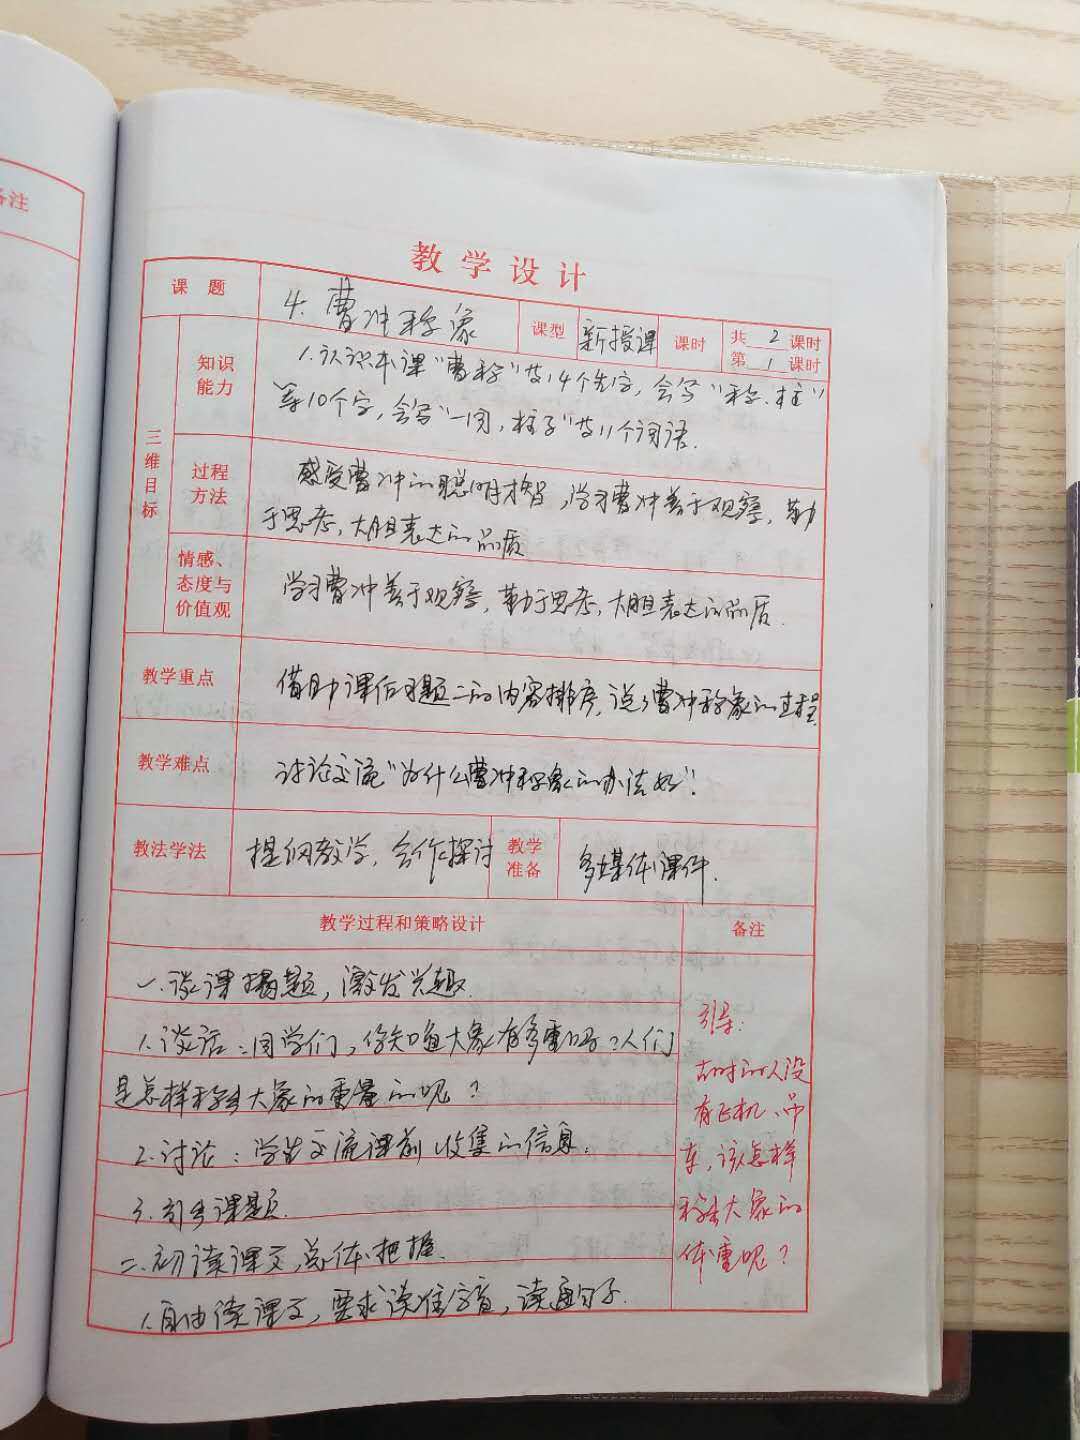 备注
教学设计
课题 4.曹冲称象 课型 新授课 课时 共 2 课时
第 1 课时
三维目标
知识能力 1.认识本课“曹称”等14个生字,会写“称、柱”
等10个字,会写“一同,柱子”等11个词语.
过程方法 感受曹冲的聪明才智,学习曹冲善于观察,勤
于思考,大胆表达的品质
情感、态度与价值观 学习曹冲善于观察,勤于思考,大胆表达的品质.
教学重点 借助课后习题二的内容排序,说说曹冲称象的过程.
教学难点 讨论交流“为什么曹冲称象的办法好”!
教法学法 提纲教学,合作探讨 教学准备 多媒体课件.
教学过程和策略设计 备注
一.谈课揭题,激发兴趣.
1.谈话:同学们,你知道大象有多重吗?人们
是怎样称出大象的重量的呢?
2.讨论:学生交流课前收集的信息.
3.引出课题.
二.初读课文,总体把握.
1.自由读课文,要求读准字音,读通句子.
引导:
古时的人没
有飞机、吊
车,该怎样
称出大象的
体重呢?